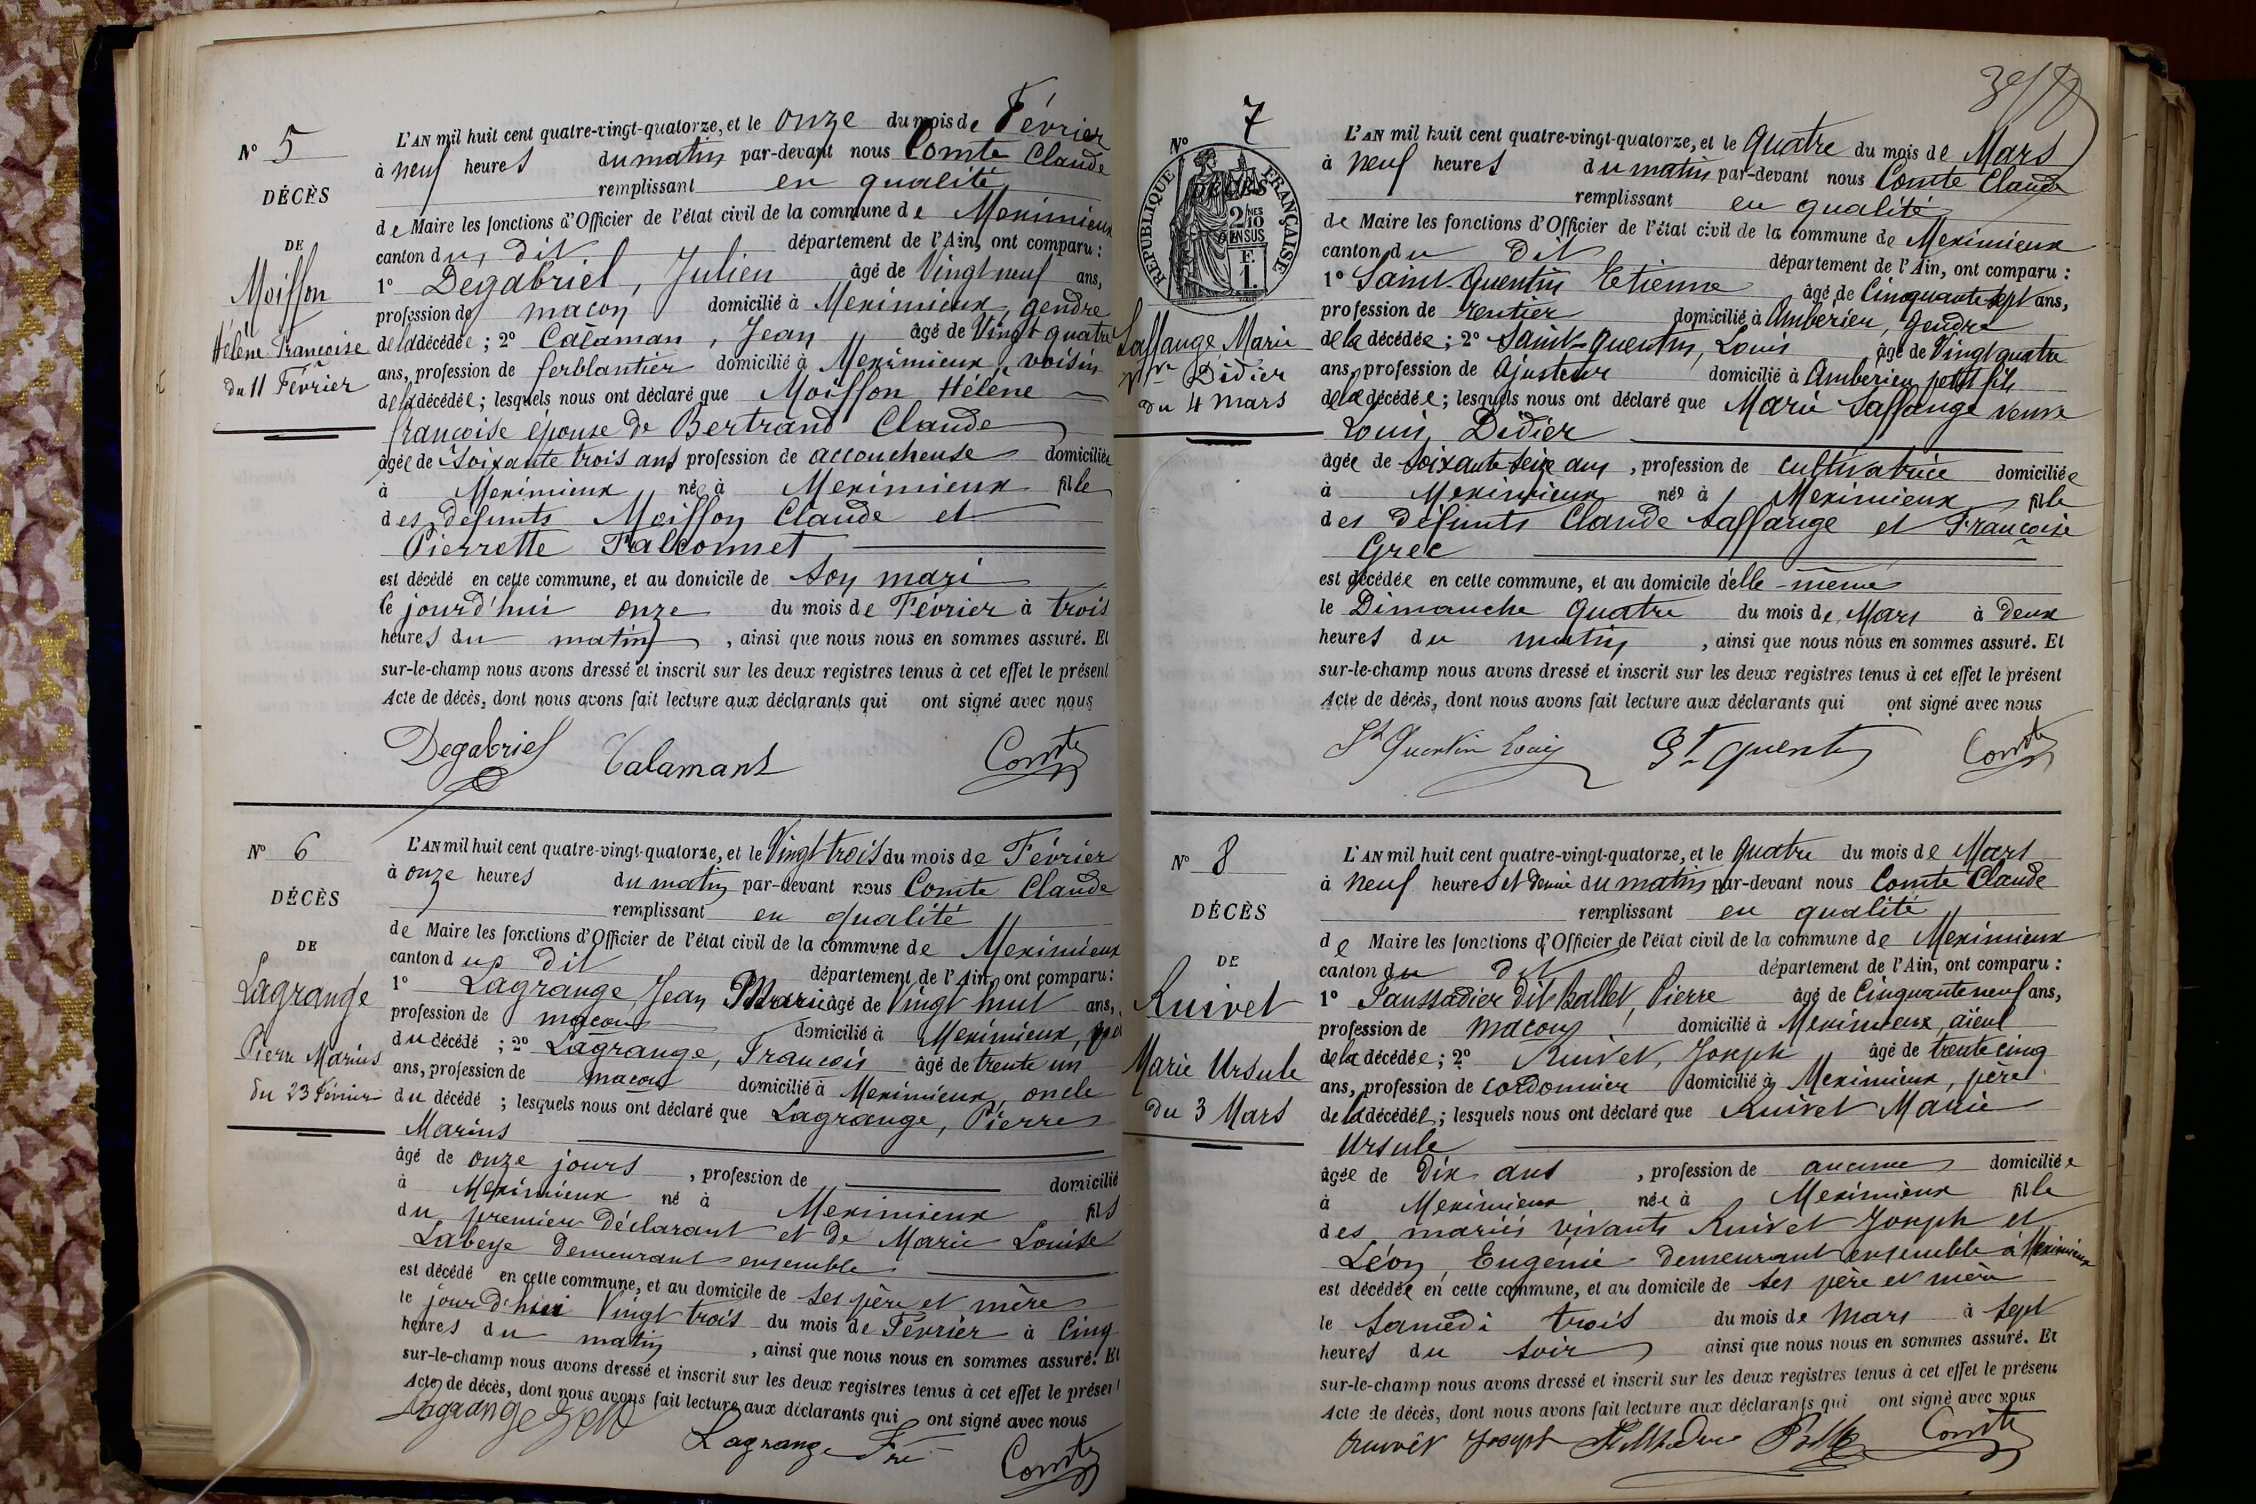 N° 5
DÉCÈS
DE
Moiffon
Hélène Françoise
du 11 Février
L'AN mil huit cent quatre-vingt-quatorze, et le onze du mois de Février
à neuf heures du matin par-devant nous Comte Claude
remplissant en qualité
de Maire les fonctions d'Officier de l'état civil de la commune de Meximieux
canton du dit département de l'Ain, ont comparu :
1° Dégabriel, Julien âgé de Vingt neuf ans,
profession de maçon domicilié à Meximieux, gendre
de la décédée ; 2° Calaman, Jean âgé de Vingt quatre
ans, profession de ferblantier domicilié à Meximieux, voisin
de la décédée ; lesquels nous ont déclaré que Moiffon Hélène
françoise épouse de Bertrand Claude
âgée de Soixante trois ans profession de accoucheuse domiciliée
à Meximieux née à Meximieux fille
des défunts Moiffon Claude et
Pierrette Falconnet
est décédé en cette commune, et au domicile de son mari
le jourd'hui onze du mois de Février à trois
heures du matin, ainsi que nous nous en sommes assuré. Et
sur-le-champ nous avons dressé et inscrit sur les deux registres tenus à cet effet le présent
Acte de décès, dont nous avons fait lecture aux déclarants qui ont signé avec nous
Degabriel Calamant Comte
N° 6
DÉCÈS
DE
Lagrange
Pierre Marius
du 23 Février
L'AN mil huit cent quatre-vingt-quatorze, et le Vingt trois du mois de Février
à onze heures du matin par-devant nous Comte Claude
remplissant en qualité
de Maire les fonctions d'Officier de l'état civil de la commune de Meximieux
canton du dit département de l'Ain, ont comparu :
1° Lagrange Jean Marie âgé de Vingt huit ans,
profession de maçon domicilié à Meximieux, père
du décédé ; 2° Lagrange, François âgé de trente un
ans, profession de maçon domicilié à Meximieux, oncle
du décédé ; lesquels nous ont déclaré que Lagrange, Pierre
Marius
âgé de onze jours, profession de domicilié
à Meximieux né à Meximieux fils
du premier déclarant et de Marie Louise
Labeye demeurant ensemble
est décédé en cette commune, et au domicile de ses père et mère
le jourd'hui Vingt trois du mois de Février à Cinq
heures du matin, ainsi que nous nous en sommes assuré. Et
sur-le-champ nous avons dressé et inscrit sur les deux registres tenus à cet effet le présent
Acte de décès, dont nous avons fait lecture aux déclarants qui ont signé avec nous
Lagrange
Lagrange Comte
N° 7
DÉCÈS
RÉPUBLIQUE FRANÇAISE
2/10 EN SUS
F. 1.
Saffange Marie
Vve Didier
du 4 mars
L'AN mil huit cent quatre-vingt-quatorze, et le Quatre du mois de Mars
à neuf heures du matin par-devant nous Comte Claude
remplissant en qualité
de Maire les fonctions d'Officier de l'état civil de la commune de Meximieux
canton du dit département de l'Ain, ont comparu :
1° Saint-Quentin Etienne âgé de Cinquante sept ans,
profession de rentier domicilié à Ambérieu, Gendre
de la décédée ; 2° Saint-Quentin, Louis âgé de Vingt quatre
ans, profession de Ajusteur domicilié à Ambérieu petit fils
de la décédée ; lesquels nous ont déclaré que Marie Saffange veuve
Louis Didier
âgée de Soixante seize ans, profession de cultivatrice domiciliée
à Meximieux née à Meximieux fille
des défunts Claude Saffange et Françoise
Grec
est décédée en cette commune, et au domicile d'elle-même
le Dimanche Quatre du mois de Mars à deux
heures du matin, ainsi que nous nous en sommes assuré. Et
sur-le-champ nous avons dressé et inscrit sur les deux registres tenus à cet effet le présent
Acte de décès, dont nous avons fait lecture aux déclarants qui ont signé avec nous
St Quentin Louis St Quentin Comte
N° 8
DÉCÈS
DE
Ruivet
Marie Ursule
du 3 Mars
L'AN mil huit cent quatre-vingt-quatorze, et le quatre du mois de Mars
à neuf heures et demie du matin par-devant nous Comte Claude
remplissant en qualité
de Maire les fonctions d'Officier de l'état civil de la commune de Meximieux
canton du dit département de l'Ain, ont comparu :
1° Faussadier dit Ballet, Pierre âgé de Cinquante neuf ans,
profession de maçon domicilié à Meximieux aïeul
de la décédée ; 2° Ruivet, Joseph âgé de trente cinq
ans, profession de cordonnier domicilié à Meximieux, père
de la décédée ; lesquels nous ont déclaré que Ruivet Marie
Ursule
âgée de Dix ans, profession de aucune domiciliée
à Meximieux née à Meximieux fille
des mariés vivants Ruivet Joseph et
Léon, Eugénie demeurant ensemble à Meximieux
est décédée en cette commune, et au domicile de ses père et mère
le Samedi trois du mois de Mars à sept
heures du soir ainsi que nous nous en sommes assuré. Et
sur-le-champ nous avons dressé et inscrit sur les deux registres tenus à cet effet le présent
Acte de décès, dont nous avons fait lecture aux déclarants qui ont signé avec nous
Ruivet Joseph Comte